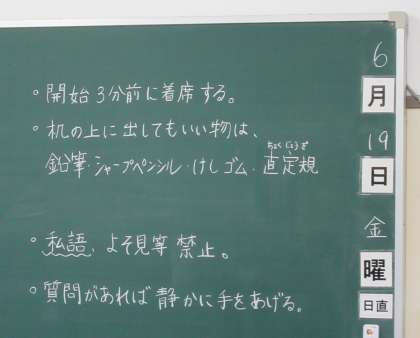 。開始3分前に着席する。
。机の上に出してもいい物は、
鉛筆・シャープペンシル・けしゴム・直定規
ちょくじょうぎ
。私語、よそ見等禁止。
。質問があれば静かに手をあげる。
6
月
19
日
金
曜
日直